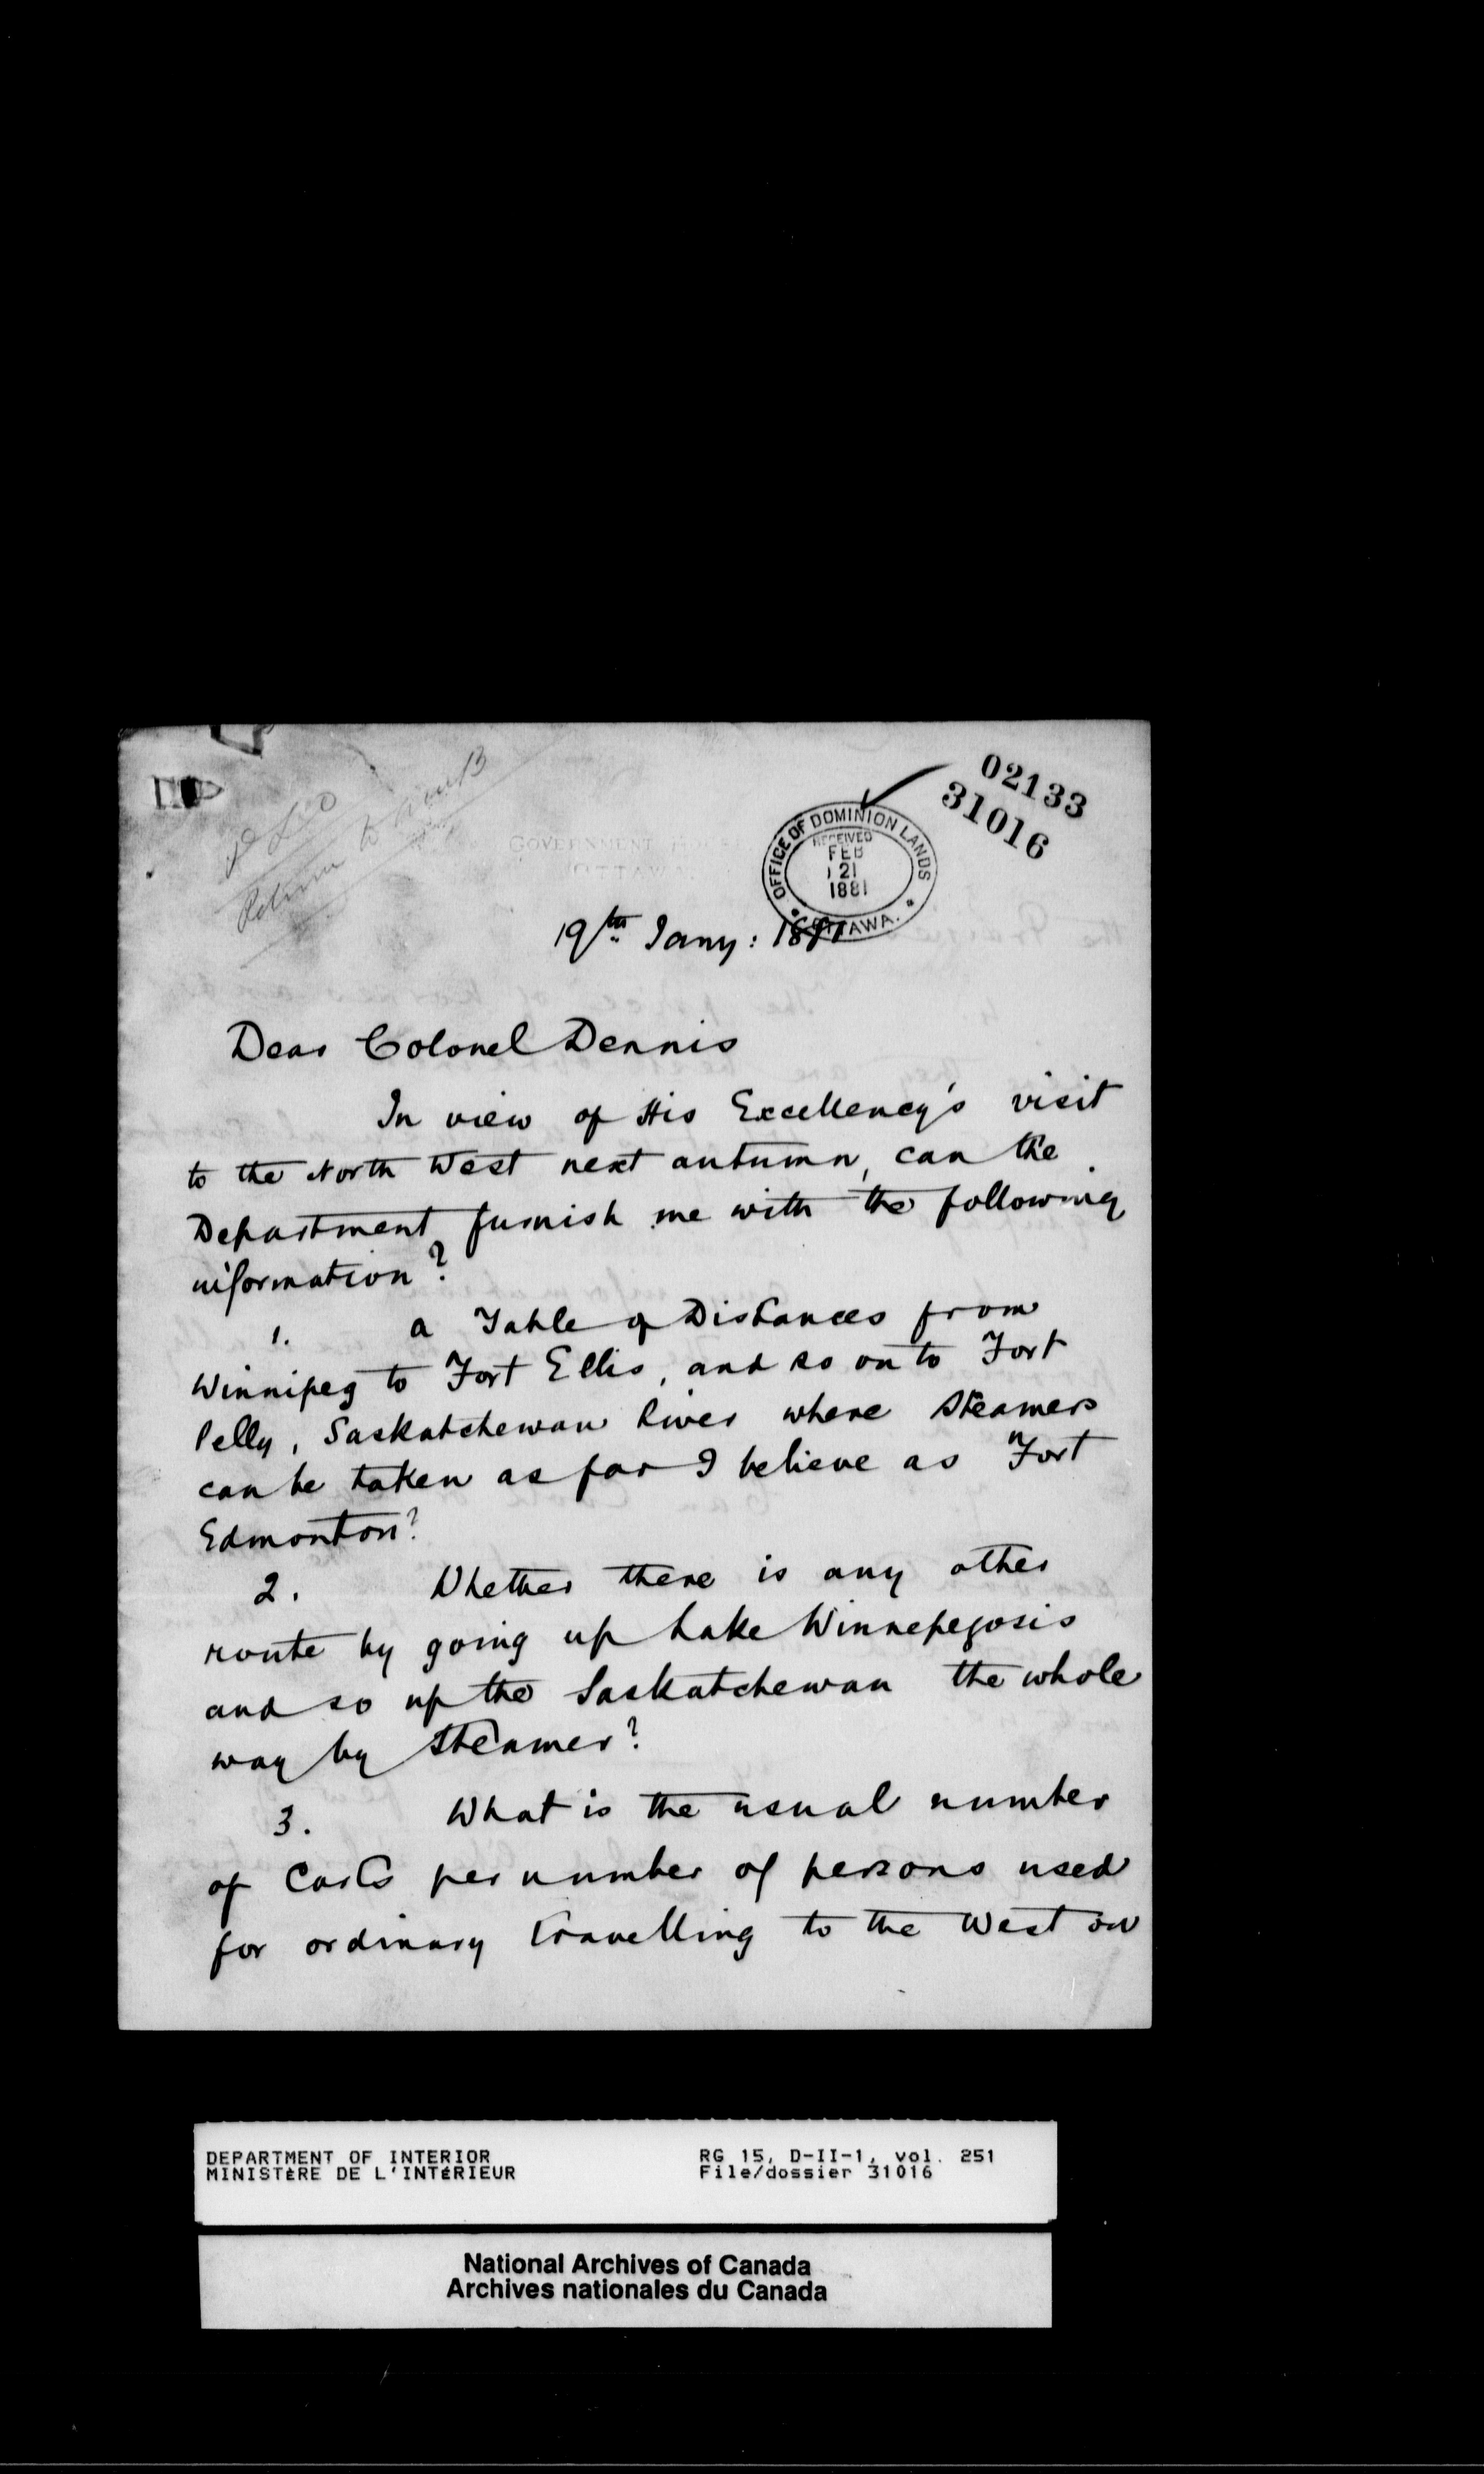 02133
31016
GOVERNMENT HOUSE
OTTAWA
OFFICE OF DOMINION LANDS
RECEIVED
FEB
21
1881
OTTAWA.
19th Jany: 1881
Dear Colonel Dennis
In view of His Excellency's visit
to the North West next autumn, can the
Department furnish me with the following
information?
1. a Table of Distances from
Winnipeg to Fort Ellis, and so on to Fort
Pelly, Saskatchewan River where steamers
can be taken as far I believe as Fort
Edmonton?
2. Whether there is any other
route by going up Lake Winnepegosis
and so up the Saskatchewan the whole
way by steamer?
3. What is the usual number
of Carts per number of persons used
for ordinary travelling to the West on
DEPARTMENT OF INTERIOR
MINISTÈRE DE L'INTÉRIEUR
RG 15, D-II-1, vol. 251
File/dossier 31016
National Archives of Canada
Archives nationales du Canada